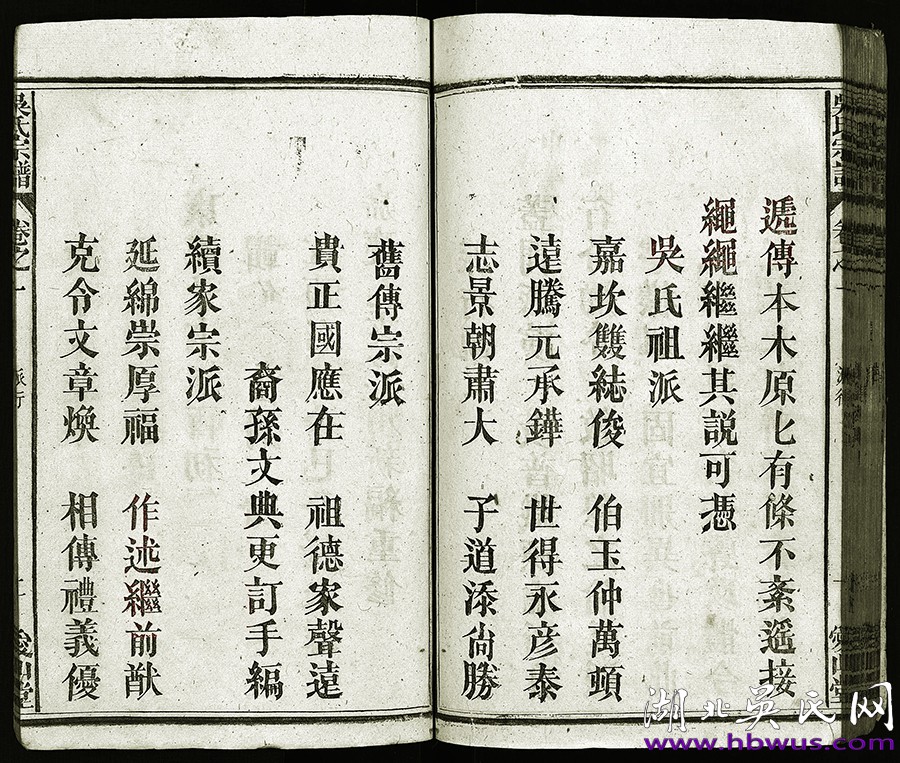 吳氏宗譜
卷之
遞傳本木原匕有條不紊遥接
繩繩繼繼其説可憑
吳氏祖派
嘉坎雙紶俊 伯玉仲萬頭
遠騰元承鏵 世得永彦泰
志景朝肅大 子道添尙勝
舊傳宗派
貴正國應在 祖德家聲遠
裔孫文典更訂手編
續家宗派
延綿崇厚福 作述繼前猷
克令文章煥 相傳禮義優
吳氏宗譜
卷之一
派行
湖北吳氏网
www.hbwus.com